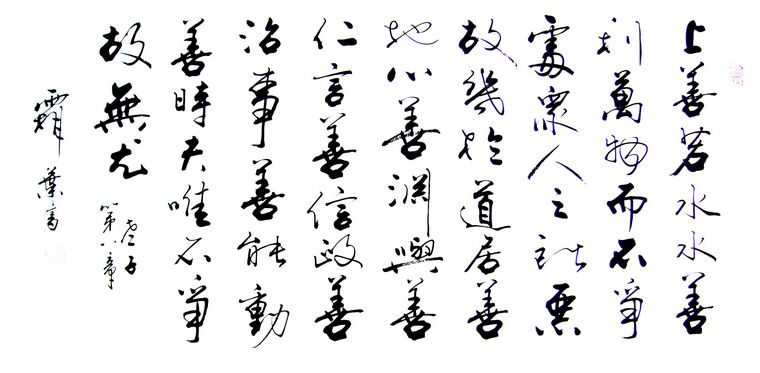 上善若水水善
利萬物而不爭
處眾人之所惡
故幾於道居善
地心善淵與善
仁言善信政善
治事善能動
善時夫唯不爭
故無尤
老子
第八章
葉